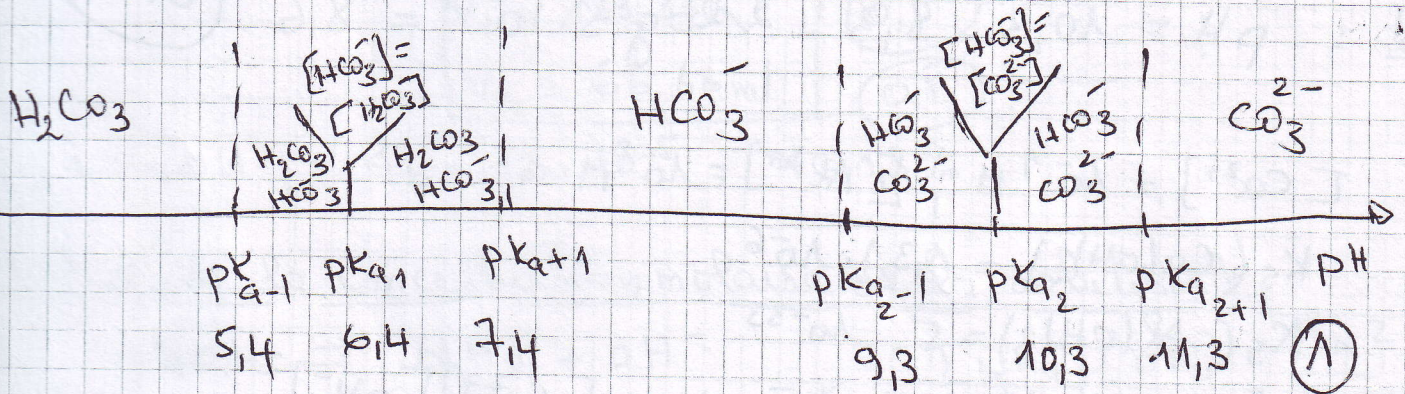 [HCO3⁻]=
[H2CO3]
[HCO3⁻]=
[CO3²⁻]
H2CO3
HCO3⁻
CO3²⁻
H2CO3
HCO3⁻
H2CO3
HCO3⁻
HCO3⁻
CO3²⁻
HCO3⁻
CO3²⁻
pKa-1 pKa1 pKa+1 pKa2-1 pKa2 pKa2+1 pH
5,4 6,4 7,4 9,3 10,3 11,3 1